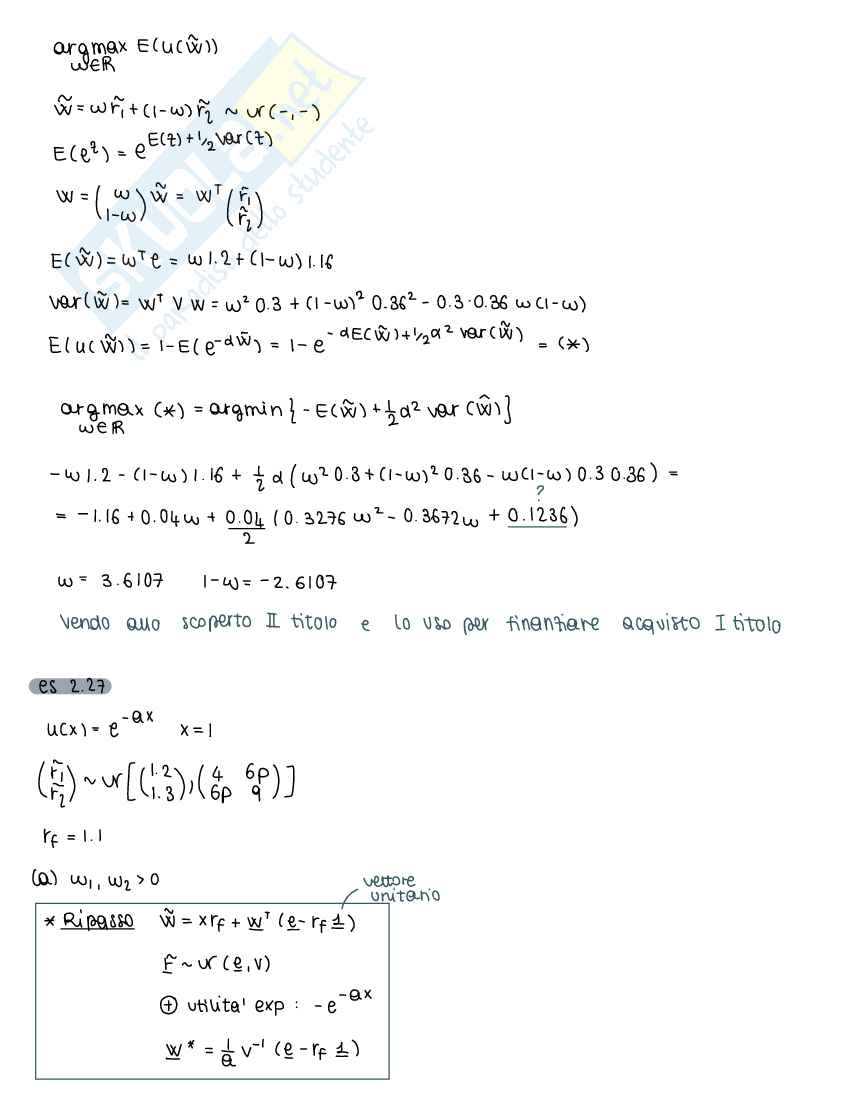 argmax E(u(w̃))
w∈ℝ
w̃ = w r̃₁ + (1-w) r̃₂ ~ N(-,-)
E(e^z) = e^(E(z) + 1/2 var(z))
W = (w 1-w) w̃ = W^T (r̃₁ r̃₂)
E(w̃) = w^T e = w 1.2 + (1-w) 1.16
var(w̃) = W^T V W = w² 0.3 + (1-w)² 0.36² - 0.3·0.36 w(1-w)
E(u(w̃)) = 1 - E(e^(-αw̃)) = 1 - e^(-αE(w̃) + 1/2 α² var(w̃)) = (*)
argmax (*) = argmin{ - E(w̃) + 1/2 α² var(w̃)}
w∈ℝ
-w 1.2 - (1-w) 1.16 + 1/2 α (w² 0.3 + (1-w)² 0.36 - w(1-w) 0.3 0.36) =
?
= -1.16 + 0.04w + 0.04/2 (0.3276 w² - 0.3672w + 0.1236)
w = 3.6107 1-w = -2.6107
Vendo allo scoperto II titolo e lo uso per finanziare acquisto I titolo
es 2.27
u(x) = e^(-ax) x=1
(r̃₁ r̃₂) ~ N[(1.2 1.3), (4 6ρ 6ρ 9)]
r_f = 1.1
(a) w₁, w₂ > 0
vettore
unitario
* Ripasso w̃ = x r_f + w^T (e - r_f 1)
r̃ ~ N(e, V)
⊕ utilita' exp : -e^(-ax)
w* = 1/a V^(-1) (e - r_f 1)
SKUOLA.net
il paradiso dello studente